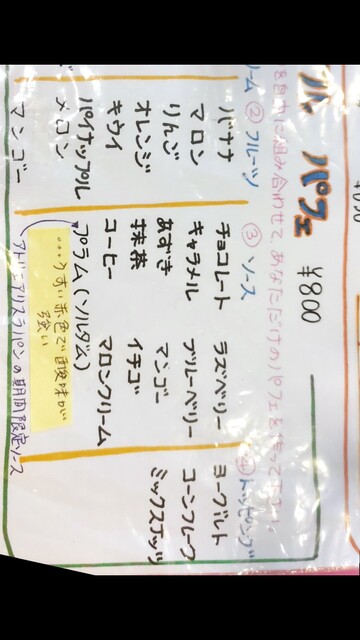 パフェ ¥800
を自由に組み合わせて、あなただけのパフェを作って下さい。
② フルーツ
バナナ
マロン
りんご
オレンジ
キウイ
パイナップル
メロン
マンゴー
③ ソース
チョコレート
キャラメル
あずき
抹茶
コーヒー
プラム(ソルダム)
…うすい赤色で酸味が
強い
ラズベリー
ブルーベリー
マンゴー
イチゴ
マロンクリーム
アトリエアリスラパンの期間限定ソース
④ トッピング
ヨーグルト
コーンフレーク
ミックスナッツ